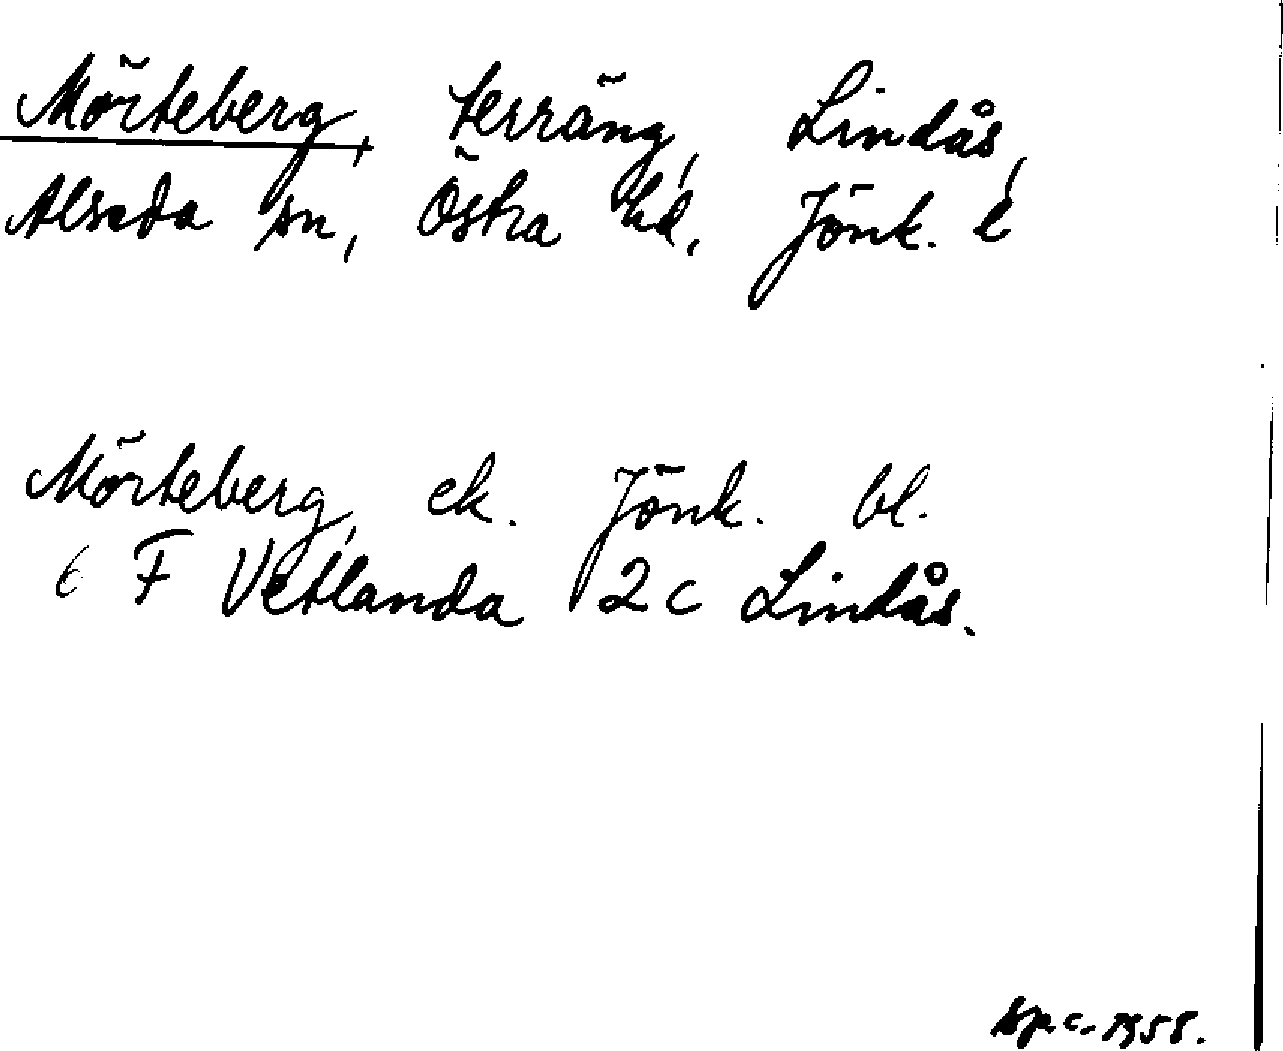 Mörteberg, terräng, Lindås,
Alseda sn, Östra hd, Jönk. l
Mörteberg, ek. Jönk. bl.
6 F Vetlanda 2 c Lindås.